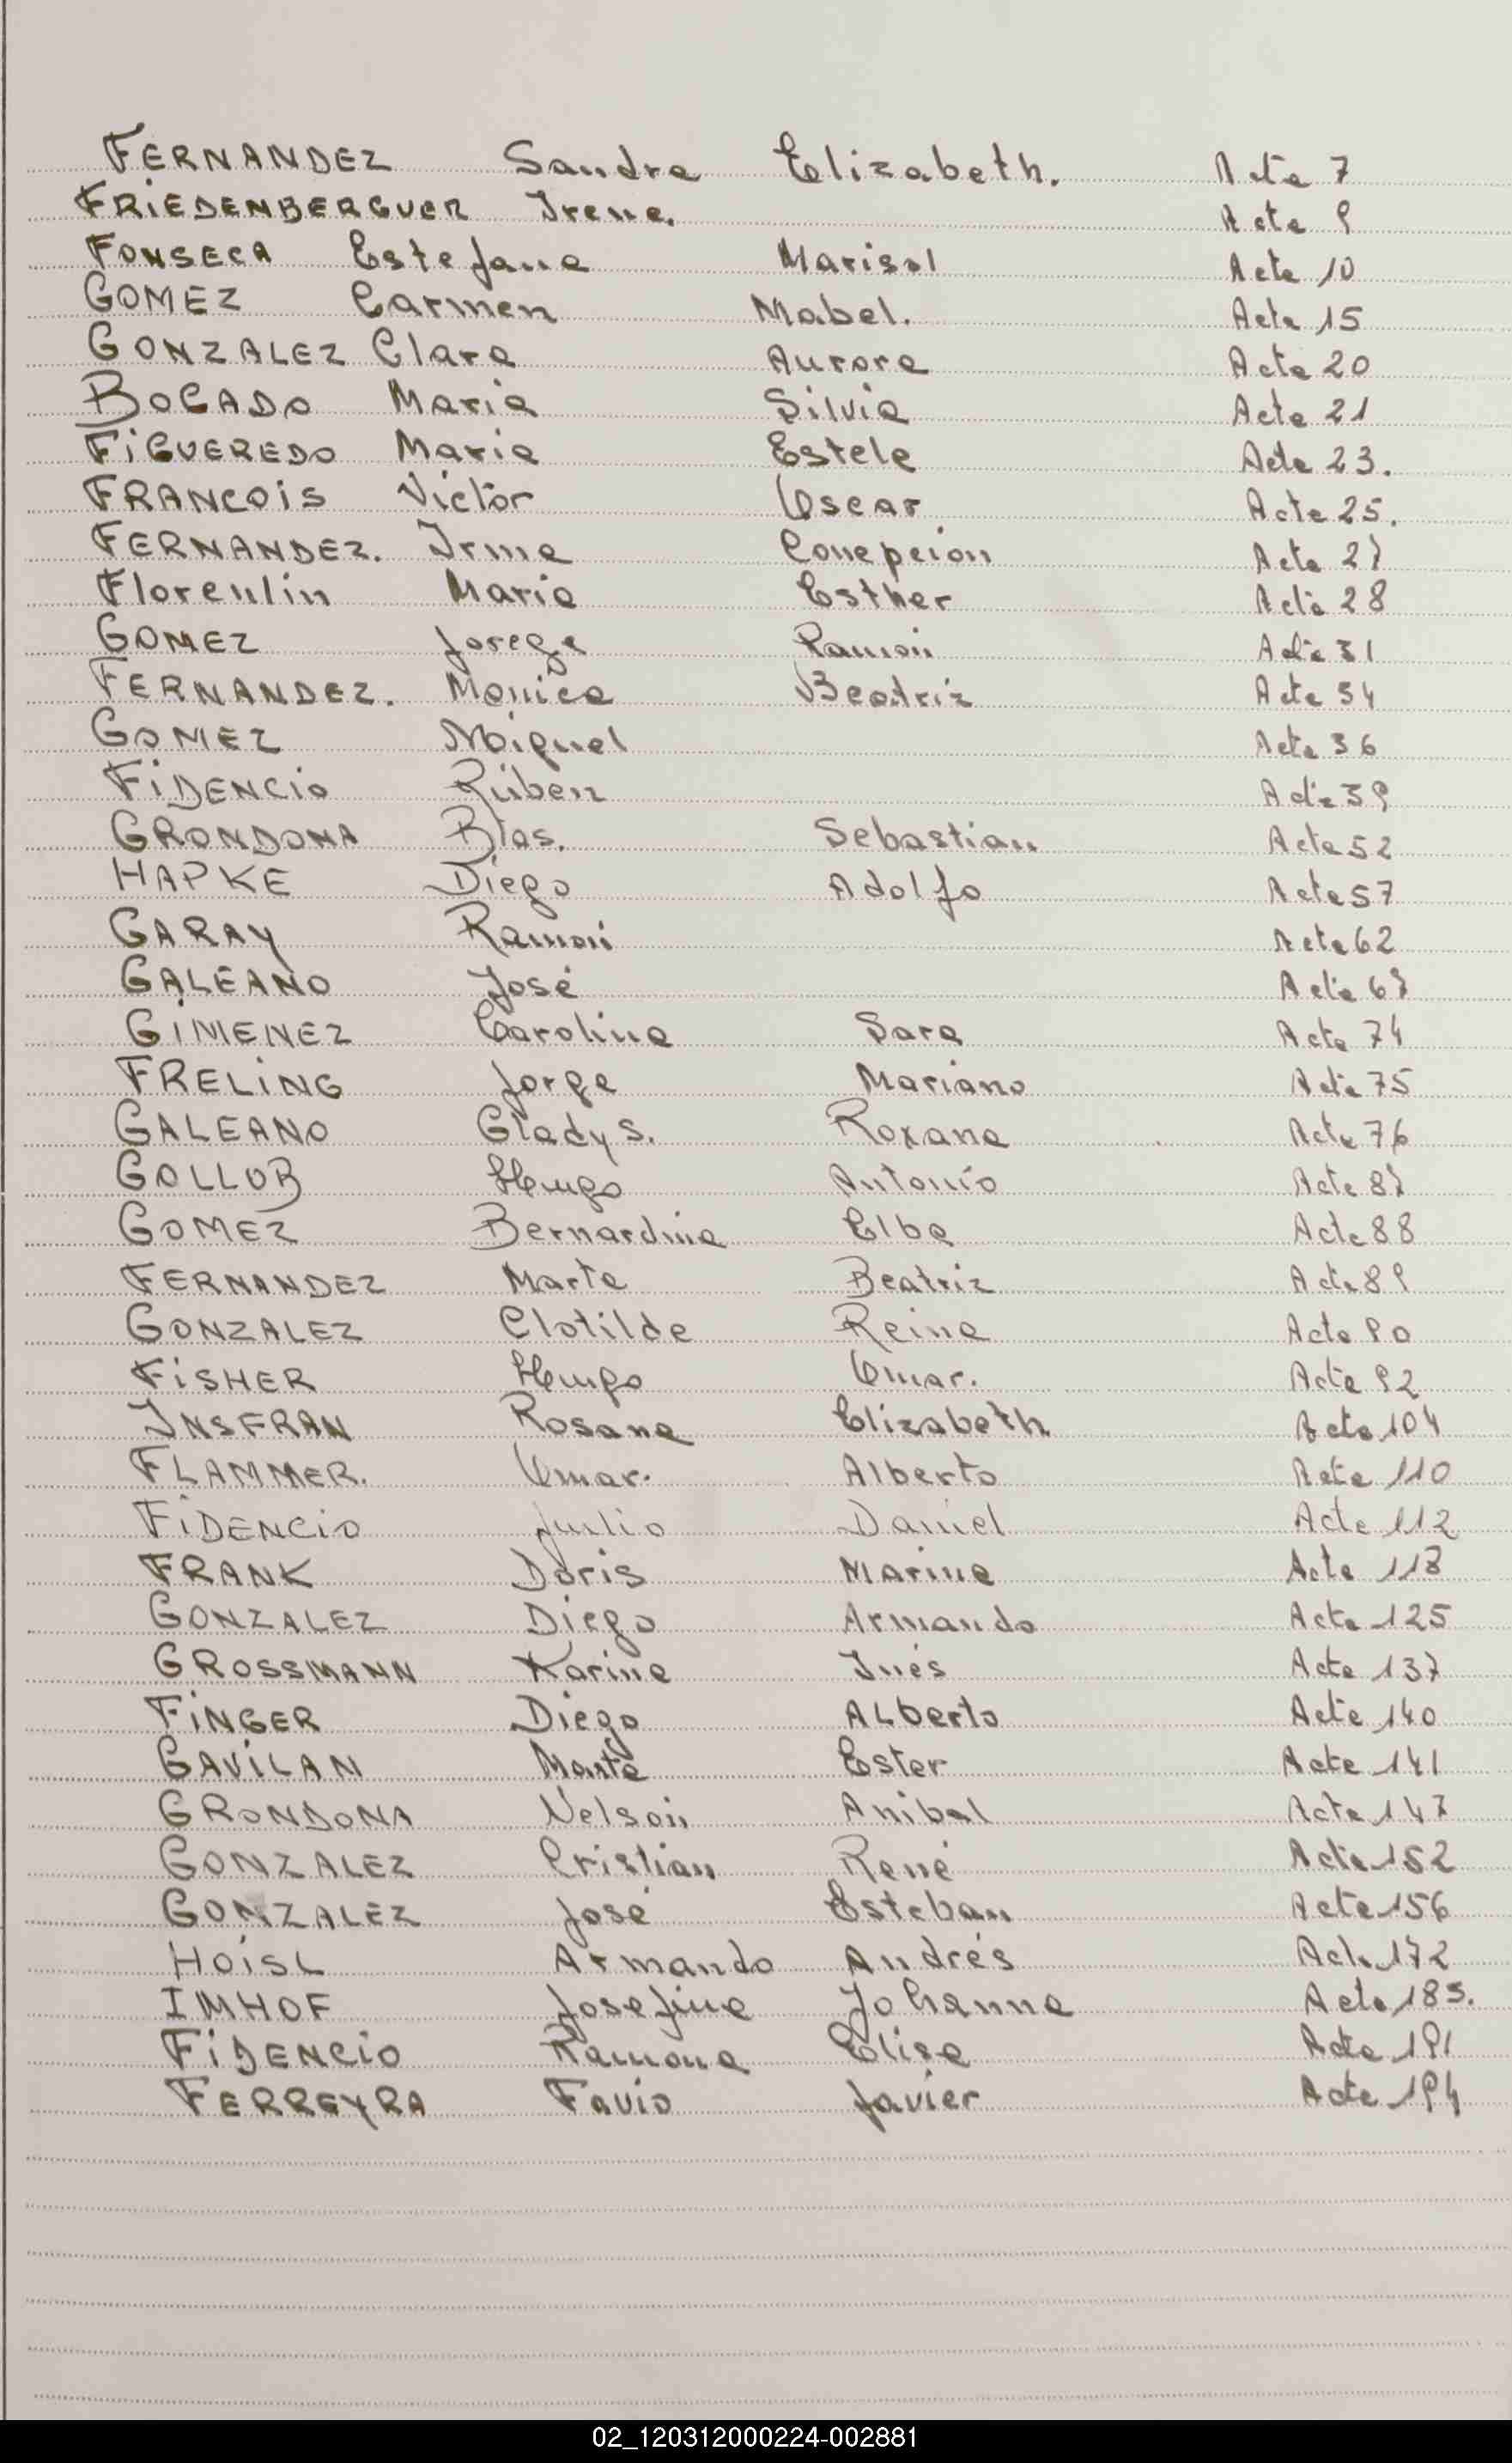 FERNANDEZ Sandra Elizabeth. Acta 7
FRIEDENBERGUER Irene. Acta 9
FONSECA Estefana Marisol Acta 10
GOMEZ Carmen Mabel. Acta 15
GONZALEZ Clara Aurora Acta 20
BOGADO Maria Silvia Acta 21
FIGUEREDO Maria Estela Acta 23.
FRANCOIS Victor Oscar Acta 25.
FERNANDEZ. Irma Concepcion Acta 27
Florentin Maria Esther Acta 28
GOMEZ Jorege Ramon Acta 31
FERNANDEZ. Monica Beatriz Acta 34
GOMEZ Miguel Acta 36
FIDENCIO Rúben Acta 39
GRONDONA Blas. Sebastian Acta 52
HAPKE Diego Adolfo Acta 57
GARAY Ramón Acta 62
GALEANO José Acta 67
GIMENEZ Carolina Sara Acta 74
FRELING Jorge Mariano Acta 75
GALEANO Gladys. Roxana Acta 76
GOLLUB Hugo Antonio Acta 87
GOMEZ Bernardina Elba Acta 88
FERNANDEZ Marta Beatriz Acta 89
GONZALEZ Clotilde Reina Acta 90
FISHER Hugo Omar. Acta 92
INSFRAN Rosana Elizabeth. Acta 104
FLAMMER. Omar. Alberto Acta 110
FIDENCIO Julio Daniel Acta 112
FRANK Doris Marina Acta 118
GONZALEZ Diego Armando Acta 125
GROSSMANN Karina Inés Acta 137
FINGER Diego Alberto Acta 140
GAVILAN Marta Ester Acta 141
GRONDONA Nelson Anibal Acta 147
GONZALEZ Cristian René Acta 152
GONZALEZ José Esteban Acta 156
HOISL Armando Andrés Acta 172
IMHOF Josefina Johanna Acta 183.
FIDENCIO Ramona Elisa Acta 191
FERREYRA Favio Javier Acta 194
02_120312000224-002881